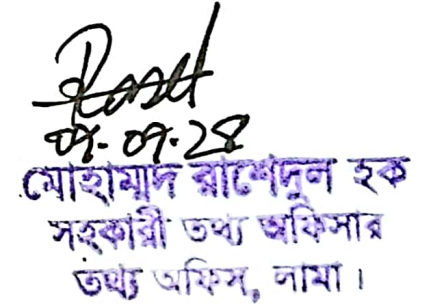 মোহাম্মাদ রাশেদুল হক
সহকারী তথ্য অফিসার
তথ্য অফিস, লামা।